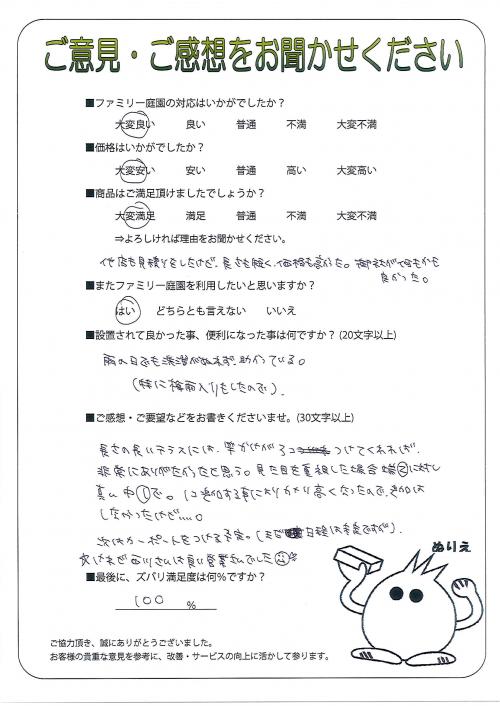 ご意見・ご感想をお聞かせください
■ファミリー庭園の対応はいかがでしたか？
大変良い 良い 普通 不満 大変不満
■価格はいかがでしたか？
大変安い 安い 普通 高い 大変高い
■商品はご満足頂けましたでしょうか？
大変満足 満足 普通 不満 大変不満
⇒よろしければ理由をお聞かせください。
他店も見積りをしたけど、長さも短く、価格も高かった。御社が何もかも
良かった。
■またファミリー庭園を利用したいと思いますか？
はい どちらとも言えない いいえ
■設置されて良かった事、便利になった事は何ですか？(20文字以上)
雨の日でも洗濯がぬれず、助かっている。
(特に梅雨入りをしたので)。
■ご感想・ご要望などをお書きくださいませ。(30文字以上)
長さの長いテラスには、竿かけが3コ つけてくれれば、
非常にありがたかったと思う。見た目を重視した場合端②に対し
真ん中①で。1コ追加する事によりかなり高くなったので、追加は
しなかったけど…。
次はカーポートをつける予定。(まだ 日程は未定ですが)。
けれど西川さんは良い営業さんでした
■最後に、ズバリ満足度は何％ですか？
100 %
ぬりえ
ご協力頂き、誠にありがとうございました。
お客様の貴重な意見を参考に、改善・サービスの向上に活かして参ります。